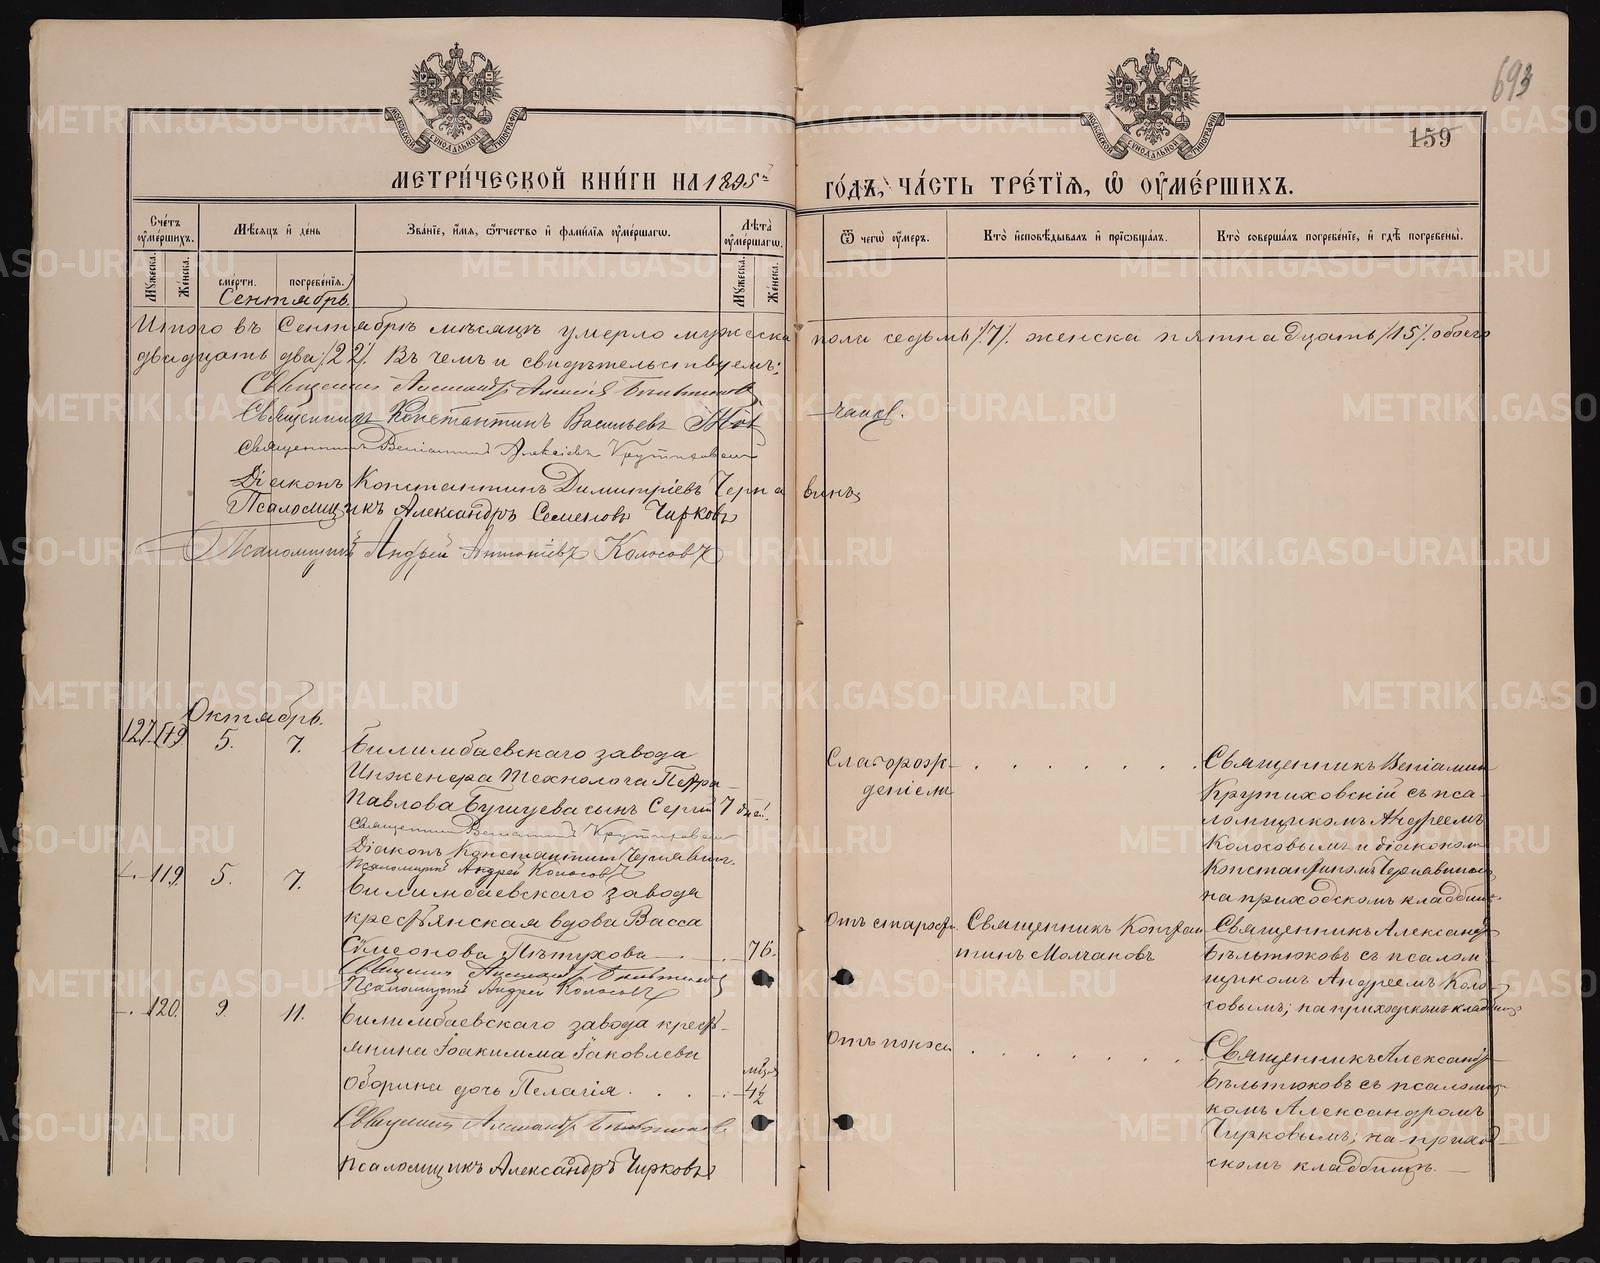 693
159
МЕТРИ́ЧЕСКОЙ КНИ́ГИ НА 1895й ГО́ДЪ, ЧА́СТЬ ТРЕ́ТІѦ, Ѡ ОУМЕ́РШИХЪ.
МОСКОВСКОЙ СѴНОДАЛЬНОЙ ТИПОГРАФІИ
МОСКОВСКОЙ СѴНОДАЛЬНОЙ ТИПОГРАФІИ
Сче́тъ оуме́ршихъ.
Мѣ́сяцъ и де́нь
Зва́ніе, и́мя, ѻ҆́тчество и фами́лія оуме́ршагѡ.
Лѣ́та оуме́ршагѡ.
Ѿ чегѡ̀ оу́меръ.
Кто̀ и҆сповѣ́дывалъ и прїѡбща́лъ.
Кто̀ соверша́лъ погребе́ніе, и гдѣ̀ погребены̀.
Му́жеска.
Же́нска.
сме́рти.
погребе́нїѧ.
Му́жеска.
Же́нска.
Сентябрь.
Итого въ Сентябрѣ мѣсяцѣ умерло мужеска пола седмь /7/. женска пятнадцать /15/. обоего
двадцать два /22/. Въ чемъ и свидѣтельствуемъ:
Священникъ Александръ Алексѣевъ Бѣльтюковъ
Священникъ Константинъ Васильевъ Молчановъ.
Священникъ Веніаминъ Алексѣевъ Крутиховскій
Діаконъ Константинъ Димитріевъ Чернавинъ
Псаломщикъ Александръ Семеновъ Чирковъ
Псаломщикъ Андрей Антоніевъ Колосовъ
Октябрь.
127. 119
5.
7.
Билимбаевскаго завода
Инженера Технолога Петра
Павлова Бушуева сынъ Сергій
7 дней.
Священникъ Веніаминъ Крутиховскій
Діаконъ Константинъ Чернавинъ.
Псаломщикъ Андрей Колосовъ
Слаборож-
деніемъ
Священникъ Веніаминъ
Крутиховскій съ пса-
ломщикомъ Андреемъ
Колосовымъ и діакономъ
Константиномъ Чернавинымъ
на приходскомъ кладбищѣ
119.
5.
7.
Билимбаевскаго завода
крестьянская вдова Васса
Симеонова Пѣтухова
76.
Священникъ Александръ Бѣльтюковъ
Псаломщикъ Андрей Колосовъ
Отъ старости
Священникъ Констан
тинъ Молчановъ
Священникъ Александръ
Бѣльтюковъ съ псалом-
щикомъ Андреемъ Коло-
совымъ; на приходскомъ кладбищѣ
120.
9.
11.
Билимбаевскаго завода кресть-
янина Іоакимма Іаковлева
Оборина дочь Пелагія.
мѣся
4½
Священникъ Александръ Бѣльтюковъ
Псаломщикъ Александръ Чирковъ
Отъ поноса
Священникъ Александръ
Бѣльтюковъ съ псаломщи-
комъ Александромъ
Чирковымъ; на приход-
скомъ кладбищѣ.
METRIKI.GASO-URAL.RU